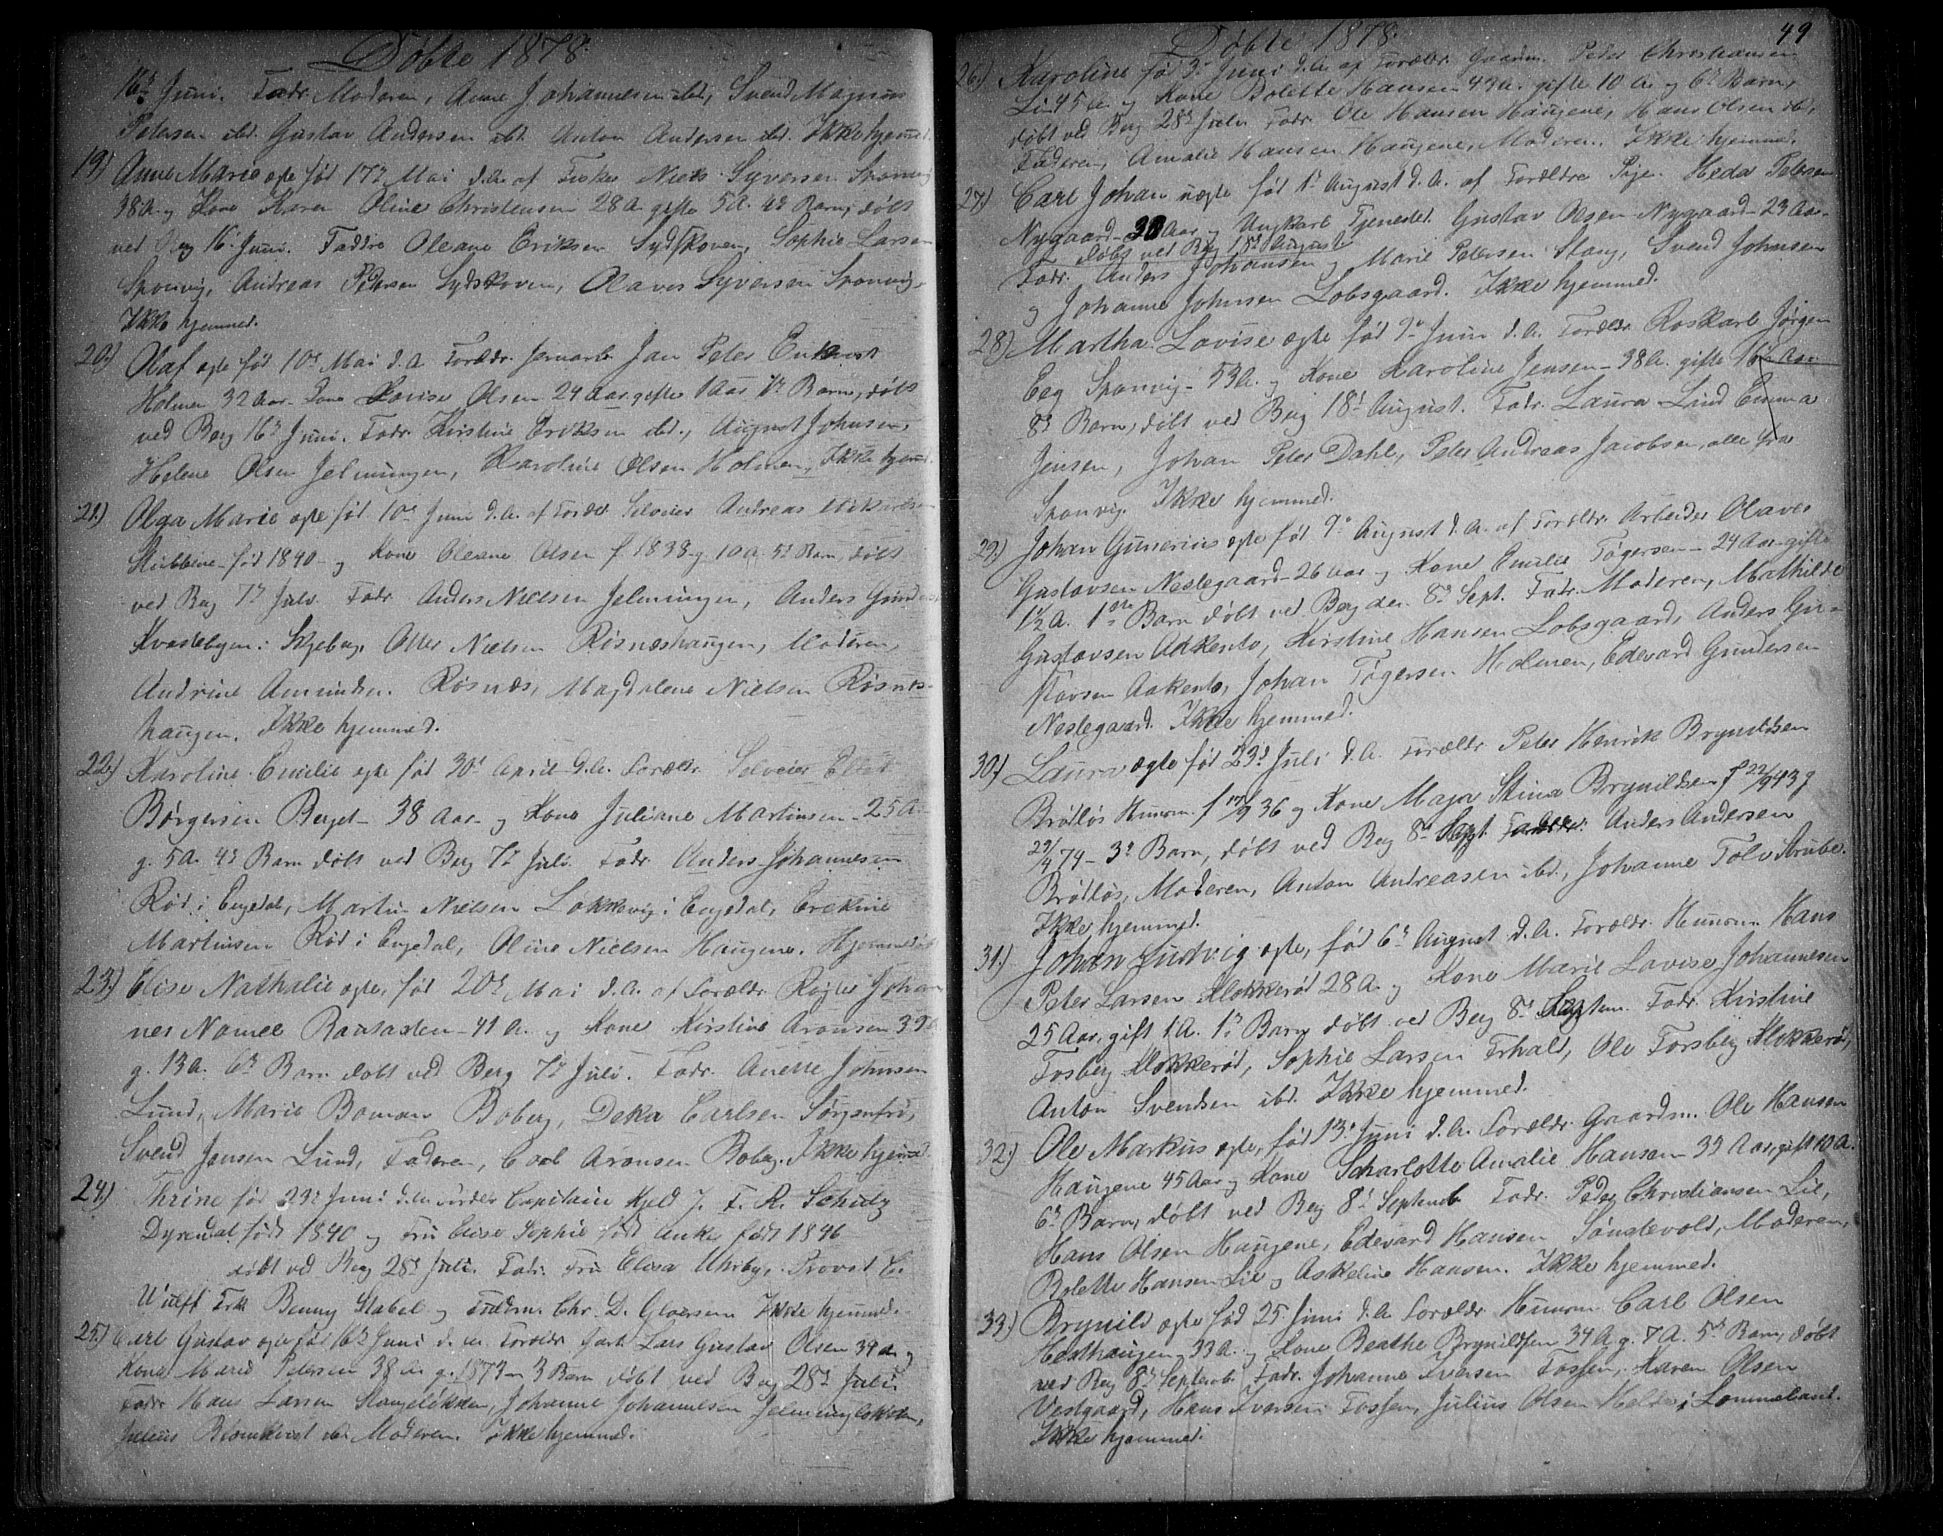 Døbte 1878.
16de Juni. Fadr. Moderen, Anne Johannesen ibd, Svend Magnus
Petersen ibd. Gustav Andersen ibd. Anton Andersen ibd. Ikke hjemmed.
19.) Anne Marie egte født 17de Mai d.A. af Fisker Niels Syversen Sponvig
38 A. og Kone Karen Oline Christensen 28 A. gifte 5 A. 4de Barn, døbt
ved Berg 16de Juni. Faddre Oleane Eriksen Sydskoven, Sophie Larsen
Sponvig, Andreas Petersen Sydskoven, Olaves Syversen Sponvig.
Ikke hjemmed.
20.) Olaf egte født 10de Mai d.A. Forældr. Jernarb. Jan Peter
Holmen 32 Aar. Kone Lovise Olsen 24 Aar gifte 1 Aar 1ste Barn, døbt
ved Berg 16de Juni. Fadr. Kirstine Eriksen ibd., August Johnsen,
Helene Olsen Jelmungen, Karoline Olsen Holmen, Ikke hjemmd.
21.) Olga Marie egte født 10de Juni d.A. af Foreldr. Selveier Andreas
Stubbene født 1840 og Kone Oleane Olsen f. 1838 g. 10 A. 5te Barn, døbt
ved Berg 7de Juli. Fadr. Anders Nielsen Jelmungen, Anders
i Skjeberg, Otter Nielsen Røsneshaugen, Moderen,
Andrine Amundsen Røsnæs, Magdalene Nielsen Røsnes-
haugen. Ikke hjemmed.
22.) Karoline Emilie egte født 30de April d.A. Foreldr. Selveier
Børgersen Berget 38 Aar og Kone Juliane Martinsen 25 A.
g. 5 A. 4de Barn døbt ved Berg 7de Juli. Fadr. Anders Johannesen
Rød i Engedal, Martin Nielsen Løkkevig i Engedal,
Martinsen Rød i Engedal, Oline Nielsen Haugene. Hjemmedøbt
23.) Elise Nathalie egte, født 20de Mai d.A. af Foreldr. Johan
nes 41 A. og Kone Kirstine Aronsen 39
g. 13 A. 6te Barn døbt ved Berg 7de Juli. Fadr. Anette Johnsen
Lund, Marie Boman Boberg, Carlsen Sørgenfri,
Svend Jensen Lund, Faderen, Carl Aronsen Boberg. Ikke hjemmd
24.) Thrine født 23de Juni d.A. Foreldr. Capitain Kjeld J. F. R. Schulz
Dyrendal født 1840 og Fru Elise Sophie født Anker født 1846
døbt ved Berg 28de Juli. Fadr. Fru Elisa Uhrby, Provst E.
Wulff Frk Benny Stabel og Faderen Chr. D. Ikke hjemmed.
25.) Carl Gustav egte født 16de Juni d.A. Foreldr. Lars Gustav Olsen 39 A. og
Kone Marie Petersen 38 A. g. 1873 3 Barn døbt ved Berg 28de Juli.
Fadr. Hans Larsen Stangeløkken, Johanne Johannesen Jelmungløkken,
Julius ibd. Moderen. Ikke hjemmed.
49
Døbte 1878.
26.) Karoline fød 3de Juni d.A. af Foreldr. Gaardm. Peder Christiansen
Lie 45 A. og Kone Bolette Hansen 49 A. gifte 10 A. og 6te Barn,
døbt ved Berg 28de Julu Fadr. Ole Hansen Haugene, Hans Olsen ibd,
Faderen, Amalie Hansen Haugene, Moderen. Ikke hjemmed.
27.) Carl Johan uegte født 1ste August d.A. af Foreldre Pige Heda Petersen
Nygaard 30 Aar og Ungkarl Tjenestd. Gustav Olsen Nygaard 23 Aar.
døbt ved Berg 18de August
Fadr. Anders Johansen og Marie Petersen Stang, Svend Johnsen
og Johanne Johnsen Lobsgaard. Ikke hjemmed.
28.) Martha Lovise egte født 9de Juni d.A. Foreldr. Roskarl Jørgen
Eeg Sponvig 53 A. og Kone Karoline Jensen 38 A. gifte 16 Aar
8de Barn, døbt ved Berg 18de August. Fadr. Laura Lind Emma
Jensen, Johan Peter Dahl, Peter Andreas Jacobsen, alle fra
Sponvig. Ikke hjemmed.
29.) Johan Gunerius egte født 9de August d.A. af Foreldr. Arbeider Olaves
Gustavsen Neslegaard 26 Aar og Kone Emilie Tøgersen 24 Aar gifte
1½ A. 1ste Barn døbt ved Berg den 8de Sept. Fadr. Moderen, Mathilde
Gustavsen Akkento, Kirstine Hansen Lobsgaard, Anders Gu-
stavsen Aakento, Johan Tøgersen Holmen, Edevard Gundersen
Neslegaard. Ikke hjemmed.
30.) Laura egte født 23de Juli d.A. Foreldr. Peter Henrik Brynildsen
Brødløs Husm. f 17/9 36 og Kone Maja Stina Brynildsen f 22/9 43 g
29/4 74 3de Barn, døbt ved Berg 8de Sept. Faddr. Anders Andersen
Brødløs, Moderen, Anton Andreasen ibd, Johanne Tolv Strube.
Ikke hjemmed.
31.) Johan Ludvig egte, født 6te August d.A. Foreldr. Husm Hans
Peter Larsen Klokkerød 28 A. og Kone Marie Lovise Johannesen
25 Aar, gift 1 A. 1ste Barn døbt ved Berg 8de Septem. Fadr. Kirstine
Fosberg Klokkerød, Sophie Larsen Frhald, Ole Forsberg Klokkerød,
Anton Svendsen ibd. Ikke hjemmed.
32.) Ole Markus egte, født 13de Juni d.A. Foreldr. Gaardm. Ole Hansen
Haugene 45 Aar og Kone Scharlotte Amalie Hansen 33 Aar, gift 10 A.
6te Barn, døbt ved Berg 8de Septemb Fadr. Peder Christiansen Lie,
Hans Olsen Haugene, Edevard Hansen Søndevold, Moderen,
Bolette Hansen Lie og Askeline Hansen. Ikke hjemmed.
33.) Brynild egte født 25 Juni d.A. Foreldr. Husm Carl Olsen
33 A. og Kone Beathe Brynildsen 34 A. g. 7 A. 5te Barn, døbt
ved Berg 8de Septemb. Fadr. Johanne Iversen Fossen, Karen Olsen
Vestgaard, Hans Iversen Fossen, Julius Olsen Helde i Lommeland.
Ikke hjemmed.